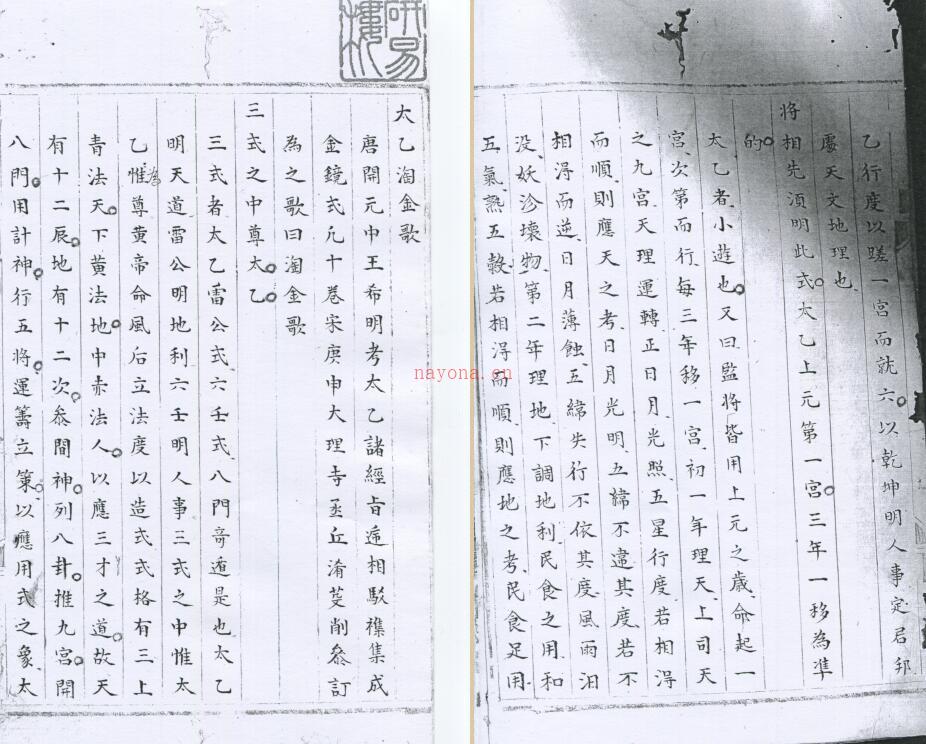 研易樓
太乙淘金歌
唐開元中王希明考太乙諸經旨遥相駁襍集成
金鏡式凡十卷宋庚申大理寺丞丘濬芟削叅訂
為之歌曰淘金歌
三式之中尊太乙
三式者太乙雷公式六壬式八門竒遁是也太乙
明天道雷公明地利六壬明人事三式之中惟太
乙惟為尊黄帝命風后立法度以造式式格有三上
青法天下黄法地中赤法人以應三才之道故天
有十二辰地有十二次叅間神列八卦推九宮開
八門用計神行五将運籌立策以應用式之象太
乙行度以蹉一宮而就六以乾坤明人事定君邦
處天文地理也
将相先須明此式太乙上元第一宮三年一移為準
的
太乙者小遊也又曰監将皆用上元之歲命起一
宮次第而行每三年移一宮初一年理天上司天
之九宮天理運轉正日月光照五星行度若相得
而順則應天之考日月光明五緯不違其度若不
相得而逆日月薄蝕五緯失行不依其度風雨汨
没妖沴壊物第二年理地下調地利民食之用和
五氣熟五穀若相得而順則應地之考民食足用
nayona.cn